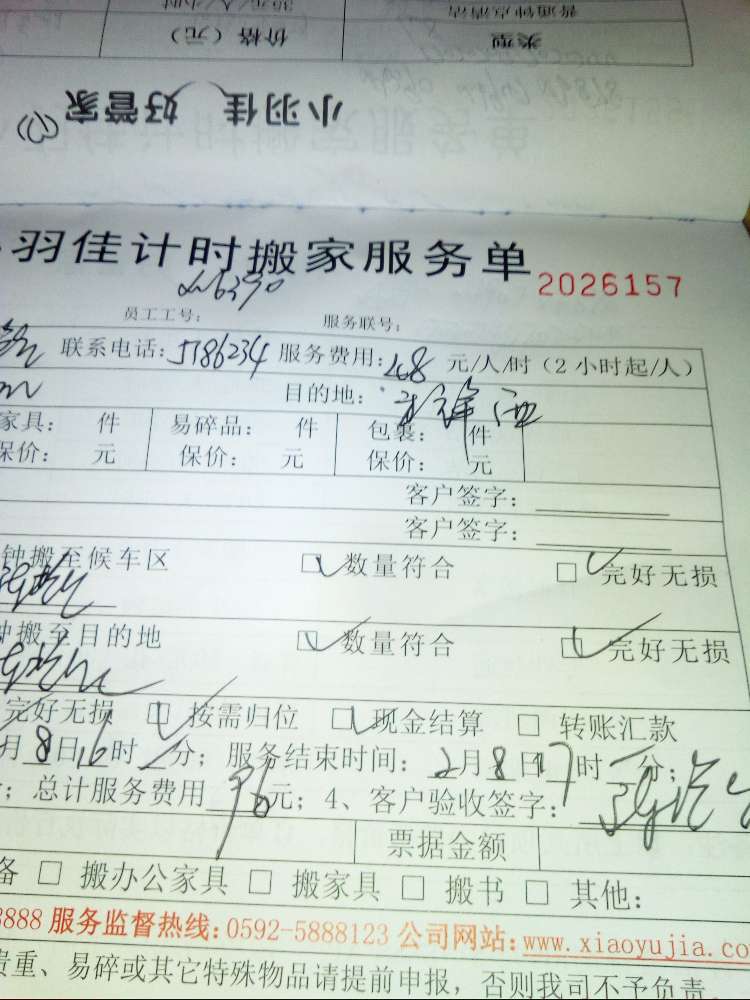 普通钟点清洁 30元/人/小时
类型 价格（元）
小羽佳 好管家
羽佳计时搬家服务单 2026157
员工工号： 服务联号：
联系电话：5186234 服务费用： 元/人/时（2小时起/人）
目的地：
家具： 件 易碎品： 件 包裹： 件
保价： 元 保价： 元 保价： 元
客户签字：
客户签字：
钟搬至候车区 □ 数量符合 □ 完好无损
钟搬至目的地 □ 数量符合 □ 完好无损
完好无损 □ 按需归位 □ 现金结算 □ 转账汇款
月8日16时 分；服务结束时间：2月8日17时 分；
；总计服务费用96元；4、客户验收签字：
票据金额
备 □ 搬办公家具 □ 搬家具 □ 搬书 □ 其他：
8888 服务监督热线：0592-5888123 公司网站：www.xiaoyujia.co
贵重、易碎或其它特殊物品请提前申报，否则我司不予负责